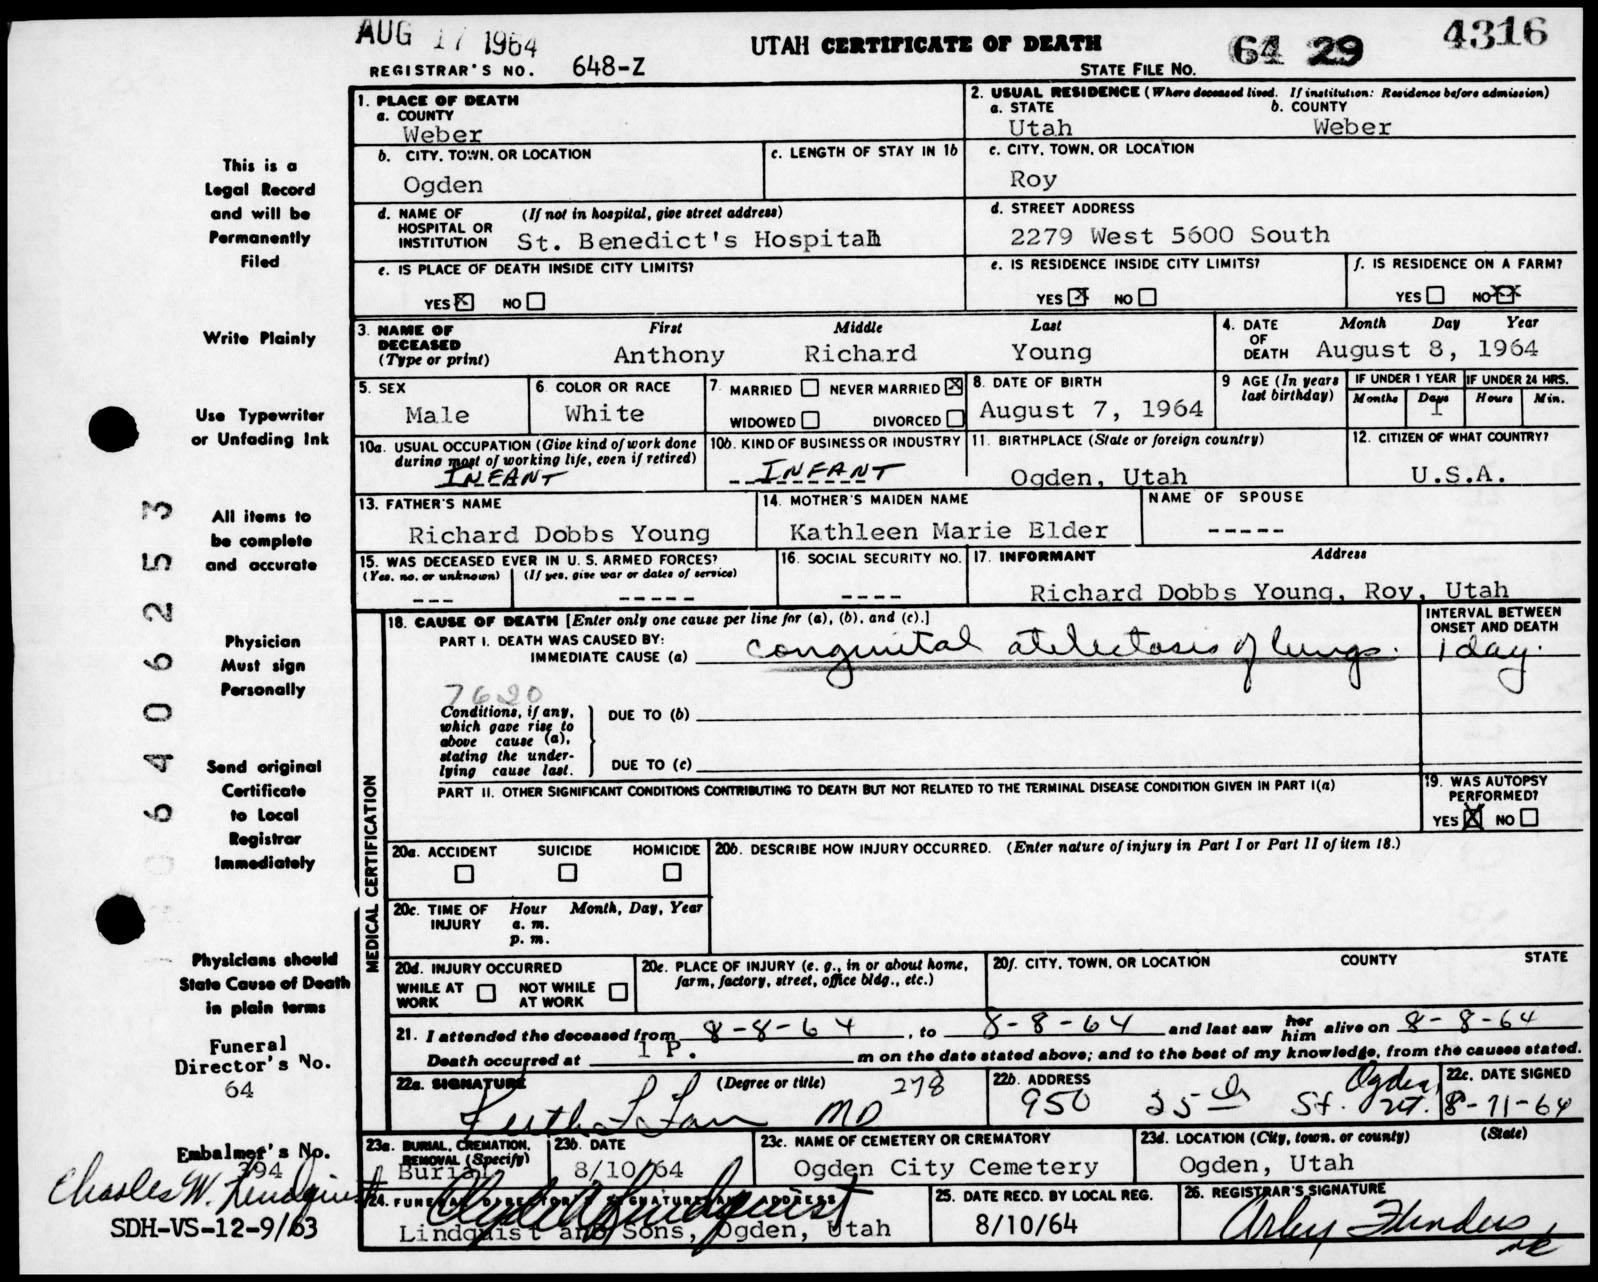 AUG 17 1964
UTAH CERTIFICATE OF DEATH
64 29 4316
REGISTRAR'S NO. 648-Z
STATE FILE NO.
1. PLACE OF DEATH
a. COUNTY
Weber
2. USUAL RESIDENCE (Where deceased lived. If institution: Residence before admission)
a. STATE b. COUNTY
Utah Weber
b. CITY, TOWN, OR LOCATION
Ogden
c. LENGTH OF STAY IN 1b
c. CITY, TOWN, OR LOCATION
Roy
d. NAME OF HOSPITAL OR INSTITUTION (If not in hospital, give street address)
St. Benedict's Hospital
d. STREET ADDRESS
2279 West 5600 South
e. IS PLACE OF DEATH INSIDE CITY LIMITS?
YES NO
e. IS RESIDENCE INSIDE CITY LIMITS?
YES NO
f. IS RESIDENCE ON A FARM?
YES NO
3. NAME OF DECEASED (Type or print)
First Middle Last
Anthony Richard Young
4. DATE OF DEATH
Month Day Year
August 8, 1964
5. SEX
Male
6. COLOR OR RACE
White
7. MARRIED NEVER MARRIED
WIDOWED DIVORCED
8. DATE OF BIRTH
August 7, 1964
9 AGE (In years last birthday)
IF UNDER 1 YEAR IF UNDER 24 HRS.
Months Days Hours Min.
1
10a. USUAL OCCUPATION (Give kind of work done during most of working life, even if retired)
INFANT
10b. KIND OF BUSINESS OR INDUSTRY
INFANT
11. BIRTHPLACE (State or foreign country)
Ogden, Utah
12. CITIZEN OF WHAT COUNTRY?
U.S.A.
13. FATHER'S NAME
Richard Dobbs Young
14. MOTHER'S MAIDEN NAME
Kathleen Marie Elder
NAME OF SPOUSE
-----
15. WAS DECEASED EVER IN U. S. ARMED FORCES?
(Yes, no, or unknown) (If yes, give war or dates of service)
--- -----
16. SOCIAL SECURITY NO.
----
17. INFORMANT Address
Richard Dobbs Young, Roy, Utah
MEDICAL CERTIFICATION
18. CAUSE OF DEATH [Enter only one cause per line for (a), (b), and (c).]
PART I. DEATH WAS CAUSED BY:
IMMEDIATE CAUSE (a) congenital atelectasis of lungs.
INTERVAL BETWEEN ONSET AND DEATH
1 day.
7620
Conditions, if any, which gave rise to above cause (a), stating the underlying cause last.
DUE TO (b)
DUE TO (c)
PART II. OTHER SIGNIFICANT CONDITIONS CONTRIBUTING TO DEATH BUT NOT RELATED TO THE TERMINAL DISEASE CONDITION GIVEN IN PART I(a)
19. WAS AUTOPSY PERFORMED?
YES NO
20a. ACCIDENT SUICIDE HOMICIDE
20b. DESCRIBE HOW INJURY OCCURRED. (Enter nature of injury in Part I or Part II of item 18.)
20c. TIME OF INJURY Hour Month, Day, Year
a. m.
p. m.
20d. INJURY OCCURRED
WHILE AT WORK NOT WHILE AT WORK
20e. PLACE OF INJURY (e. g., in or about home, farm, factory, street, office bldg., etc.)
20f. CITY, TOWN, OR LOCATION COUNTY STATE
21. I attended the deceased from 8-8-64, to 8-8-64 and last saw her him alive on 8-8-64
Death occurred at 1 P. m on the date stated above; and to the best of my knowledge, from the causes stated.
22a. SIGNATURE (Degree or title) 278
Keith MD
22b. ADDRESS
950 25th St. Ogden, Ut.
22c. DATE SIGNED
8-11-64
23a. BURIAL, CREMATION, REMOVAL (Specify)
Burial
23b. DATE
8/10/64
23c. NAME OF CEMETERY OR CREMATORY
Ogden City Cemetery
23d. LOCATION (City, town, or county) (State)
Ogden, Utah
24. FUNERAL DIRECTOR'S SIGNATURE AND ADDRESS
Lindquist
Lindquist and Sons, Ogden, Utah
25. DATE RECD. BY LOCAL REG.
8/10/64
26. REGISTRAR'S SIGNATURE
Arley Flinders
This is a
Legal Record
and will be
Permanently
Filed
Write Plainly
Use Typewriter
or Unfading Ink
All items to
be complete
and accurate
Physician
Must sign
Personally
Send original
Certificate
to Local
Registrar
Immediately
Physicians should
State Cause of Death
in plain terms
Funeral
Director's No.
64
Embalmer's No.
394
Charles W. Lindquist
SDH-VS-12-9/63
64062253